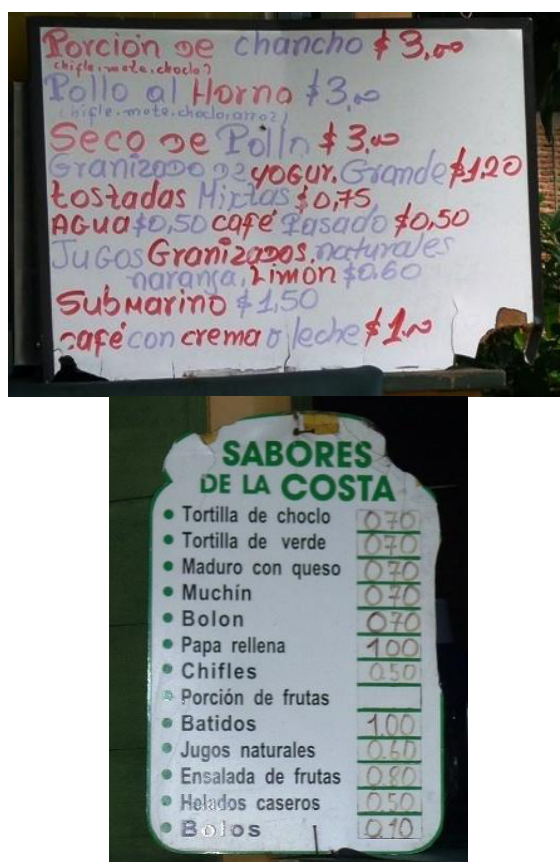 Porción de chancho $3,00
chifle.mote.choclo)
Pollo al Horno $3,00
(chifle.mote.choclo,arroz)
Seco de Pollo $3,00
Granizado de yogur.Grande $1,20
tostadas Mixtas $0,75
Agua $0,50 café Pasado $0,50
Jugos Granizados.naturales
naranja, Limón $0.60
Submarino $1,50
café con crema o leche $1,00
SABORES
DE LA COSTA
Tortilla de choclo 0.70
Tortilla de verde 0.70
Maduro con queso 0.70
Muchín 0.70
Bolon 0.70
Papa rellena 1.00
Chifles 0.50
Porción de frutas
Batidos 1.00
Jugos naturales 0.60
Ensalada de frutas 0.80
Helados caseros 0.50
Bolos 0.10